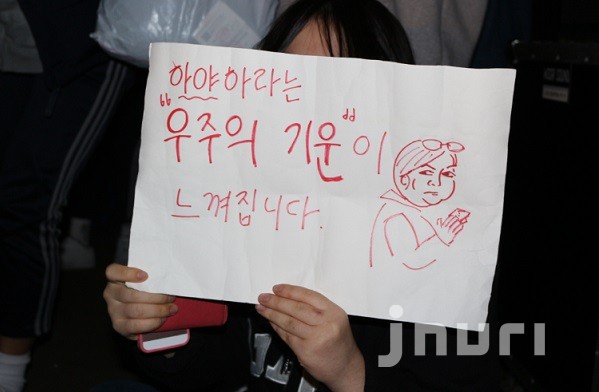 하야하라는
"우주의 기운"이
느껴집니다.
jnuri